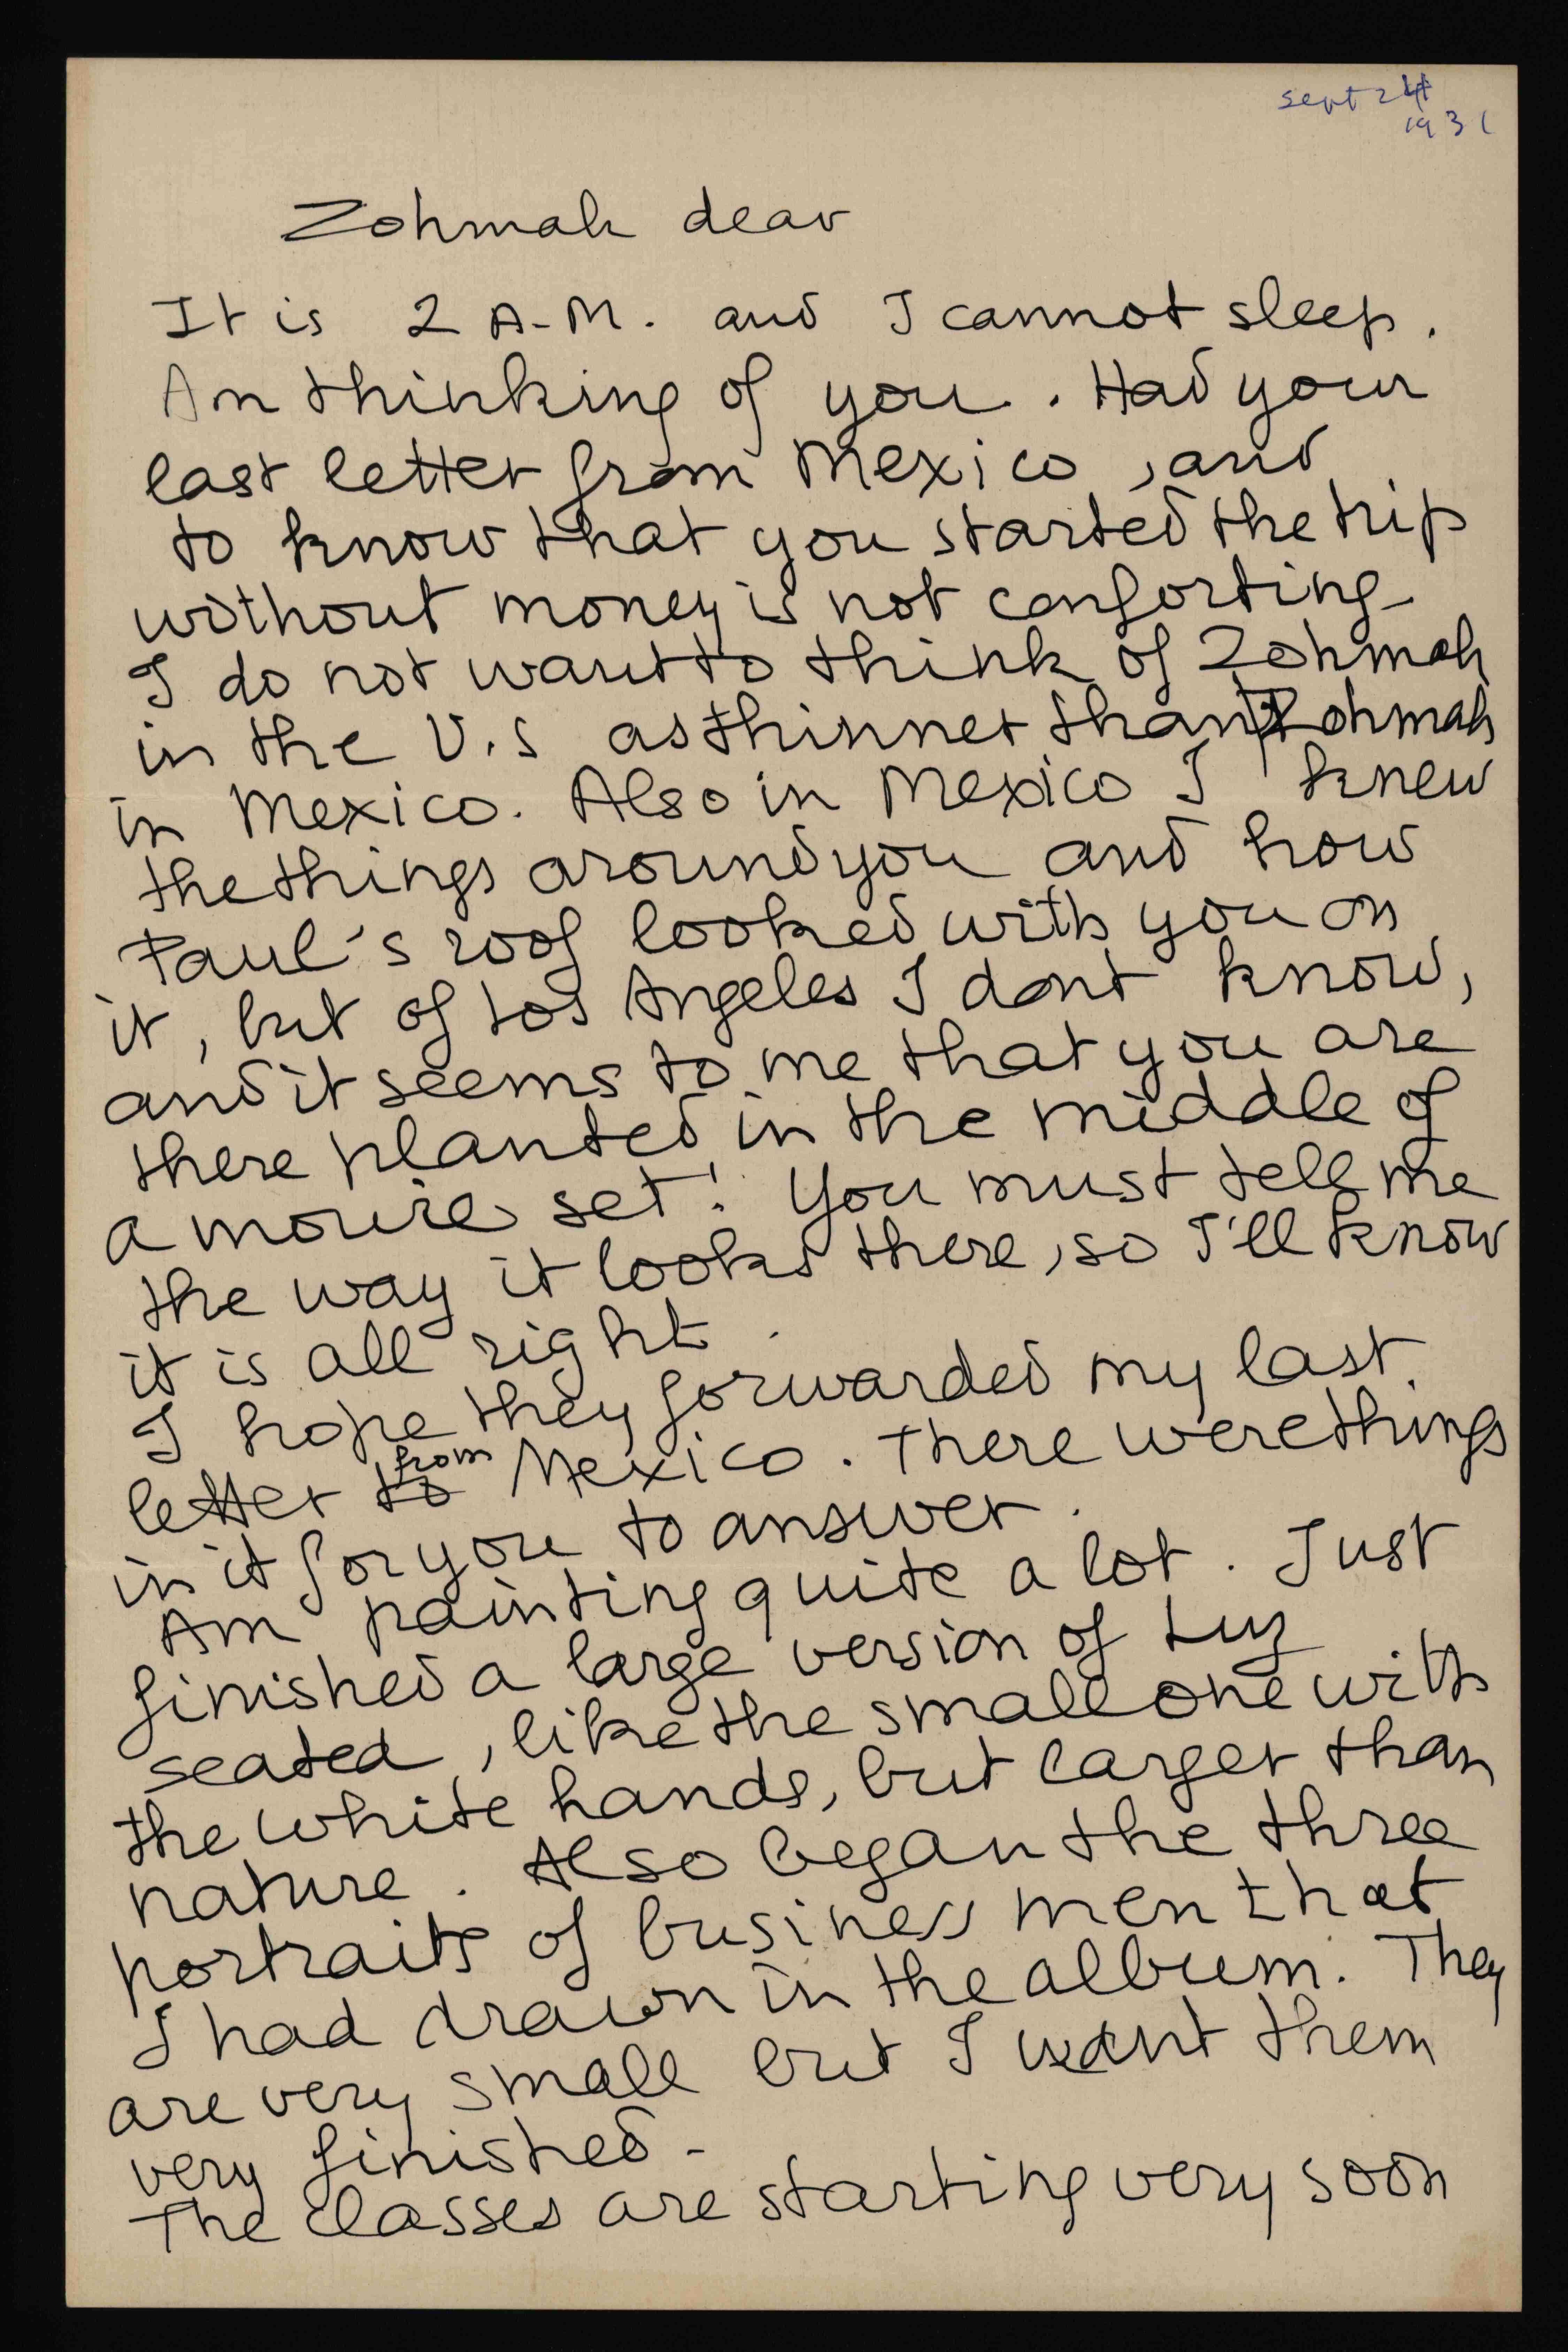 Sept 24
1931
Zohmah dear
It is 2 A-M. and I cannot sleep.
Am thinking of you. Had your
last letter from Mexico, and
to know that you started the trip
without money is not conforting-
I do not want to think of Zohmah
in the U.S as thinner than Zohmah
in Mexico. Also in Mexico I knew
the things around you and how
Paul's roof looked with you on
it, but of Los Angeles I dont know,
and it seems to me that you are
there planted in the middle of
a movie set! You must tell me
the way it looks there, so I'll know
it is all right.
I hope they forwarded my last
from
letter to Mexico. There were things
in it for you to answer.
Am painting quite a lot. Just
finished a large version of Luz
seated, like the small one with
the white hands, but larger than
nature. Also began the three
portraits of business men that
I had drawn in the album. They
are very small but I want them
very finished-
The classes are starting very soon